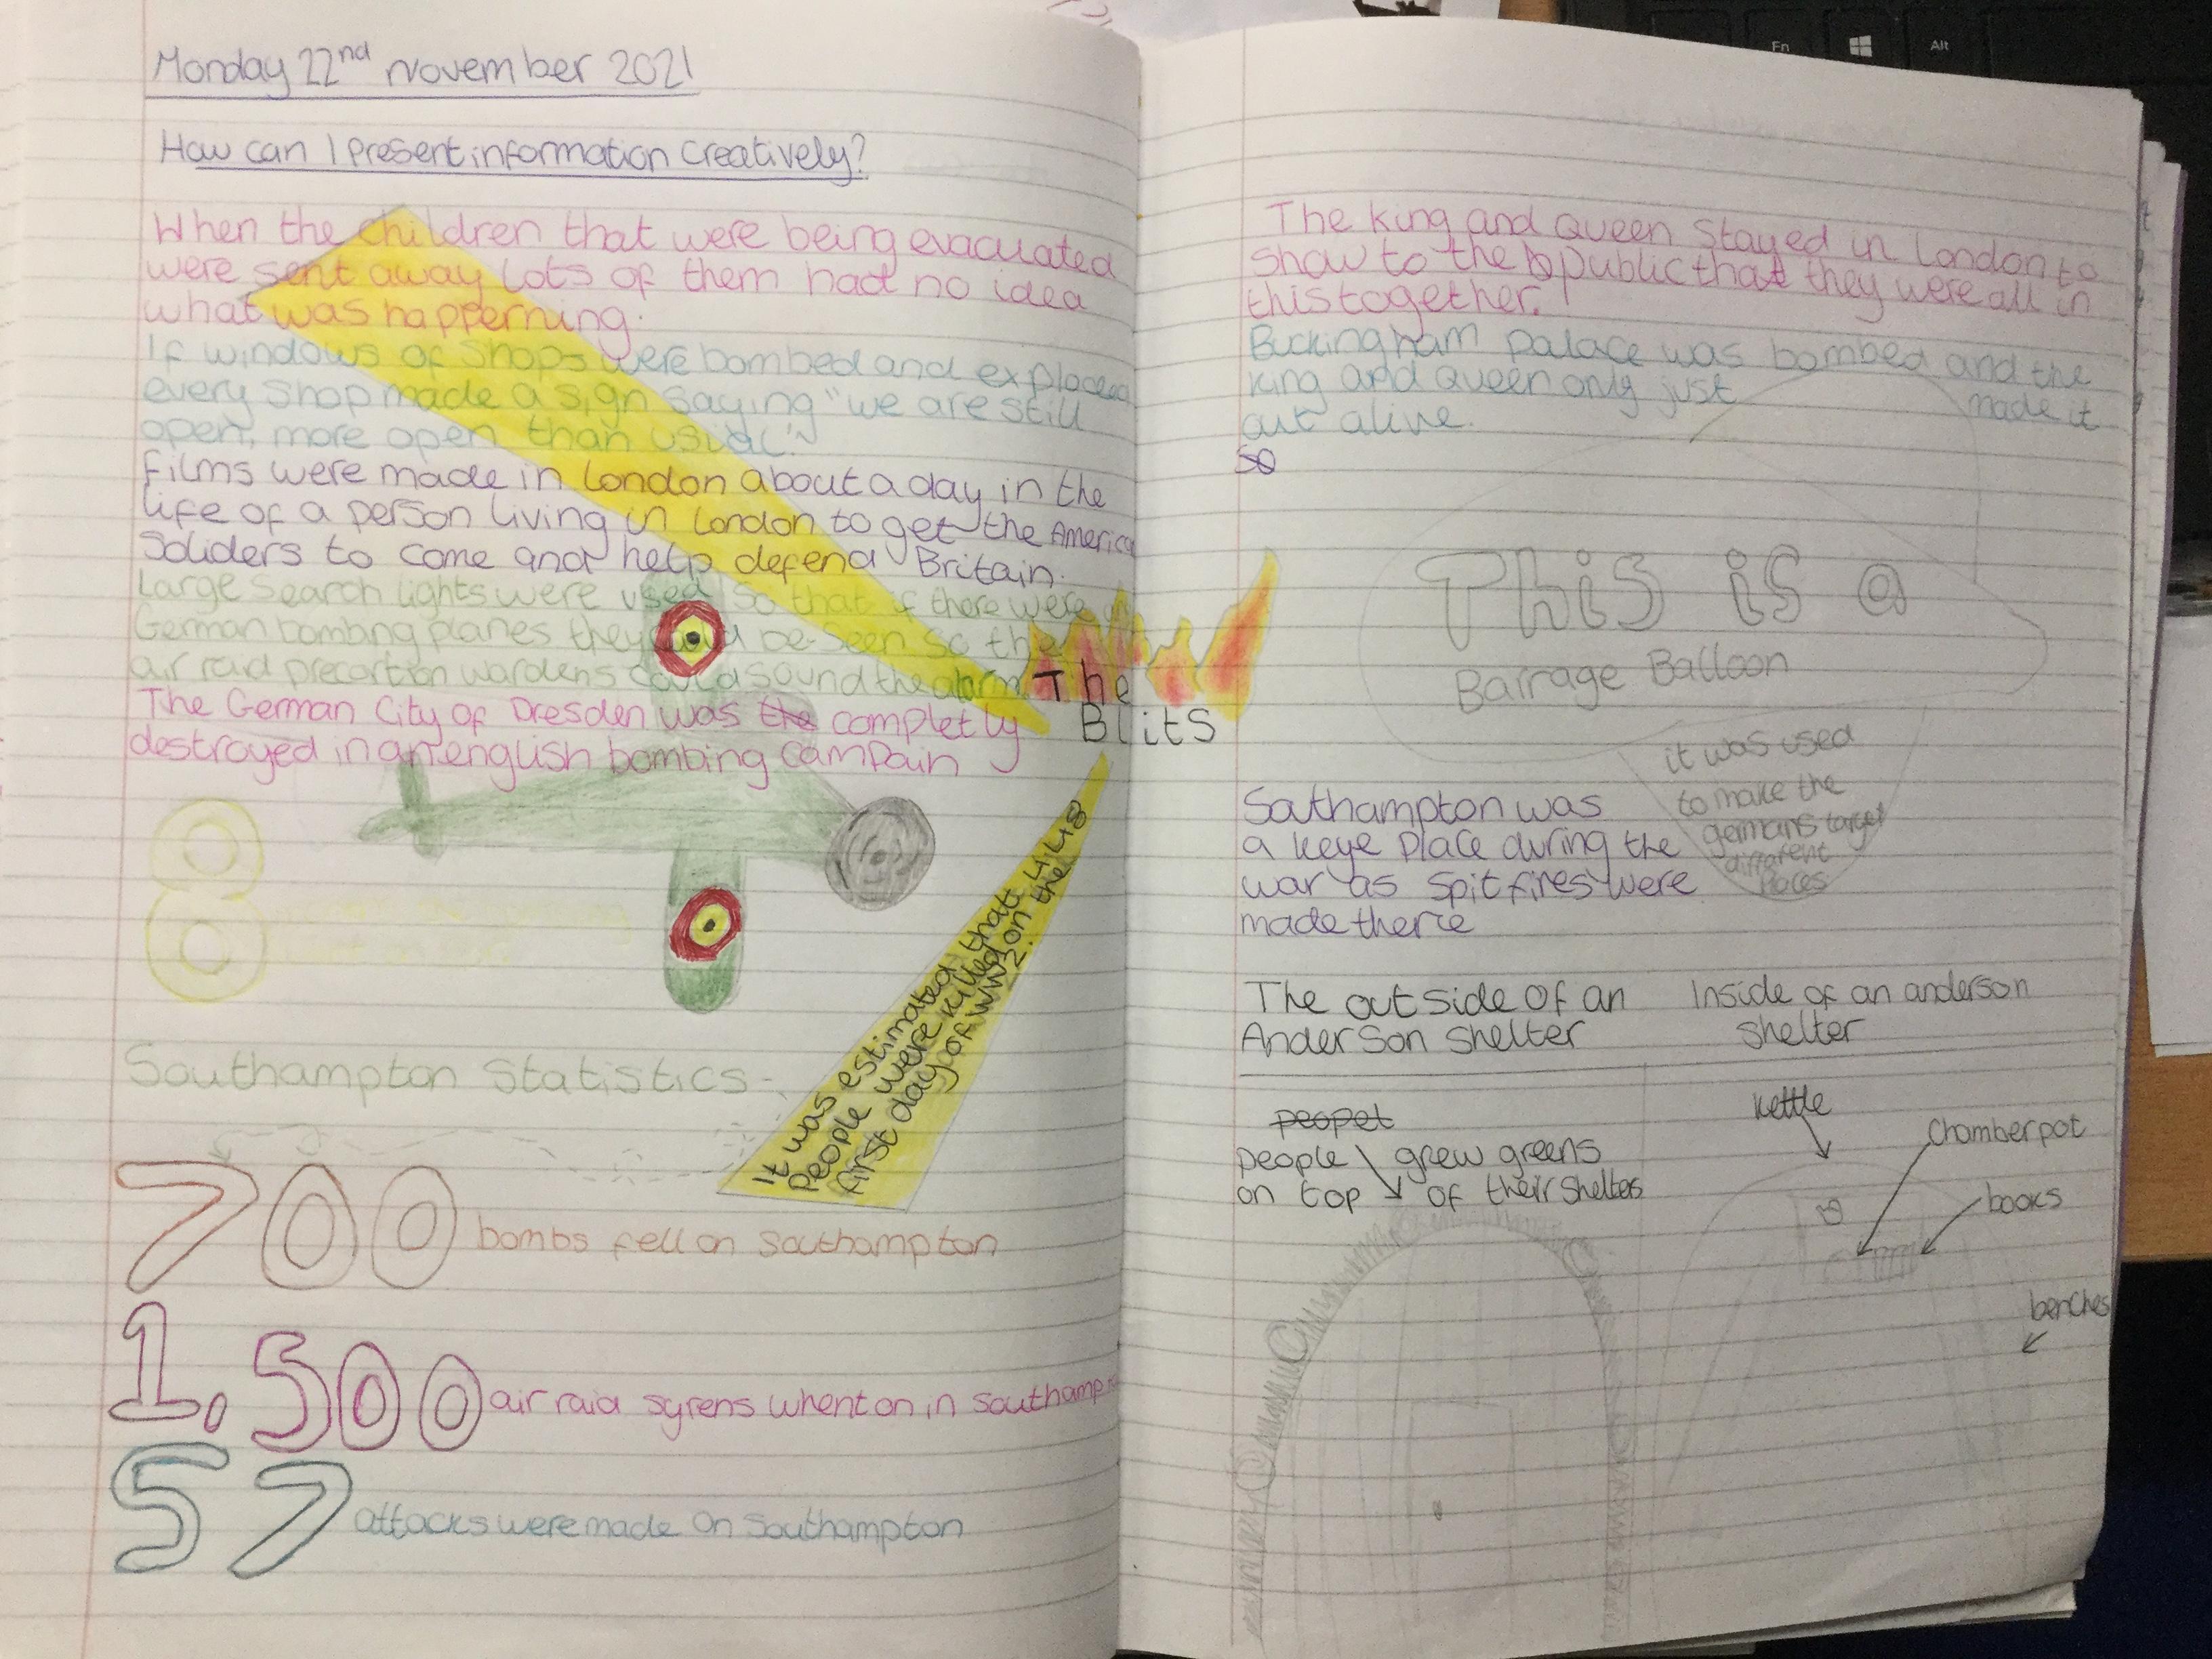 Monday 22nd November 2021
How can I present information creatively?
When the children that were being evacuated
were sent away lots of them had no idea
what was happerning.
If windows of shops were bombed and exploded
every shop made a sign saying "we are still
open, more open than usual".
Films were made in London about a day in the
life of a person living in London to get the America
Soliders to come and help defend Britain.
Large Search lights were used so that if there were
German bombing planes they could be seen so the
air raid precortion wardens could sound the alarm
The German City of Dresden was the completly
destroyed in an english bombing campain
The
Blits
8
It was estimated that
people were killed on the
first day of WW2.
Southampton Statistics-
700 bombs fell on Southampton
1,500 air raid syrens whent on in Southamp
57 attacks were made on Southampton
The King and Queen Stayed in London to
show to the b public that they were all in
this together.
Buckingham palace was bombed and the
king and Queen only just made it
out alive.
so
This is a
Barrage Balloon
it was used
to make the
germans target
different
places
Southampton was
a keye place during the
war as spitfires were
made there
The out side of an
Anderson shelter
Inside of an anderson
shelter
peopel
people grew greens
on top of their shelters
kettle
Chamber pot
books
benches
Fn
Alt